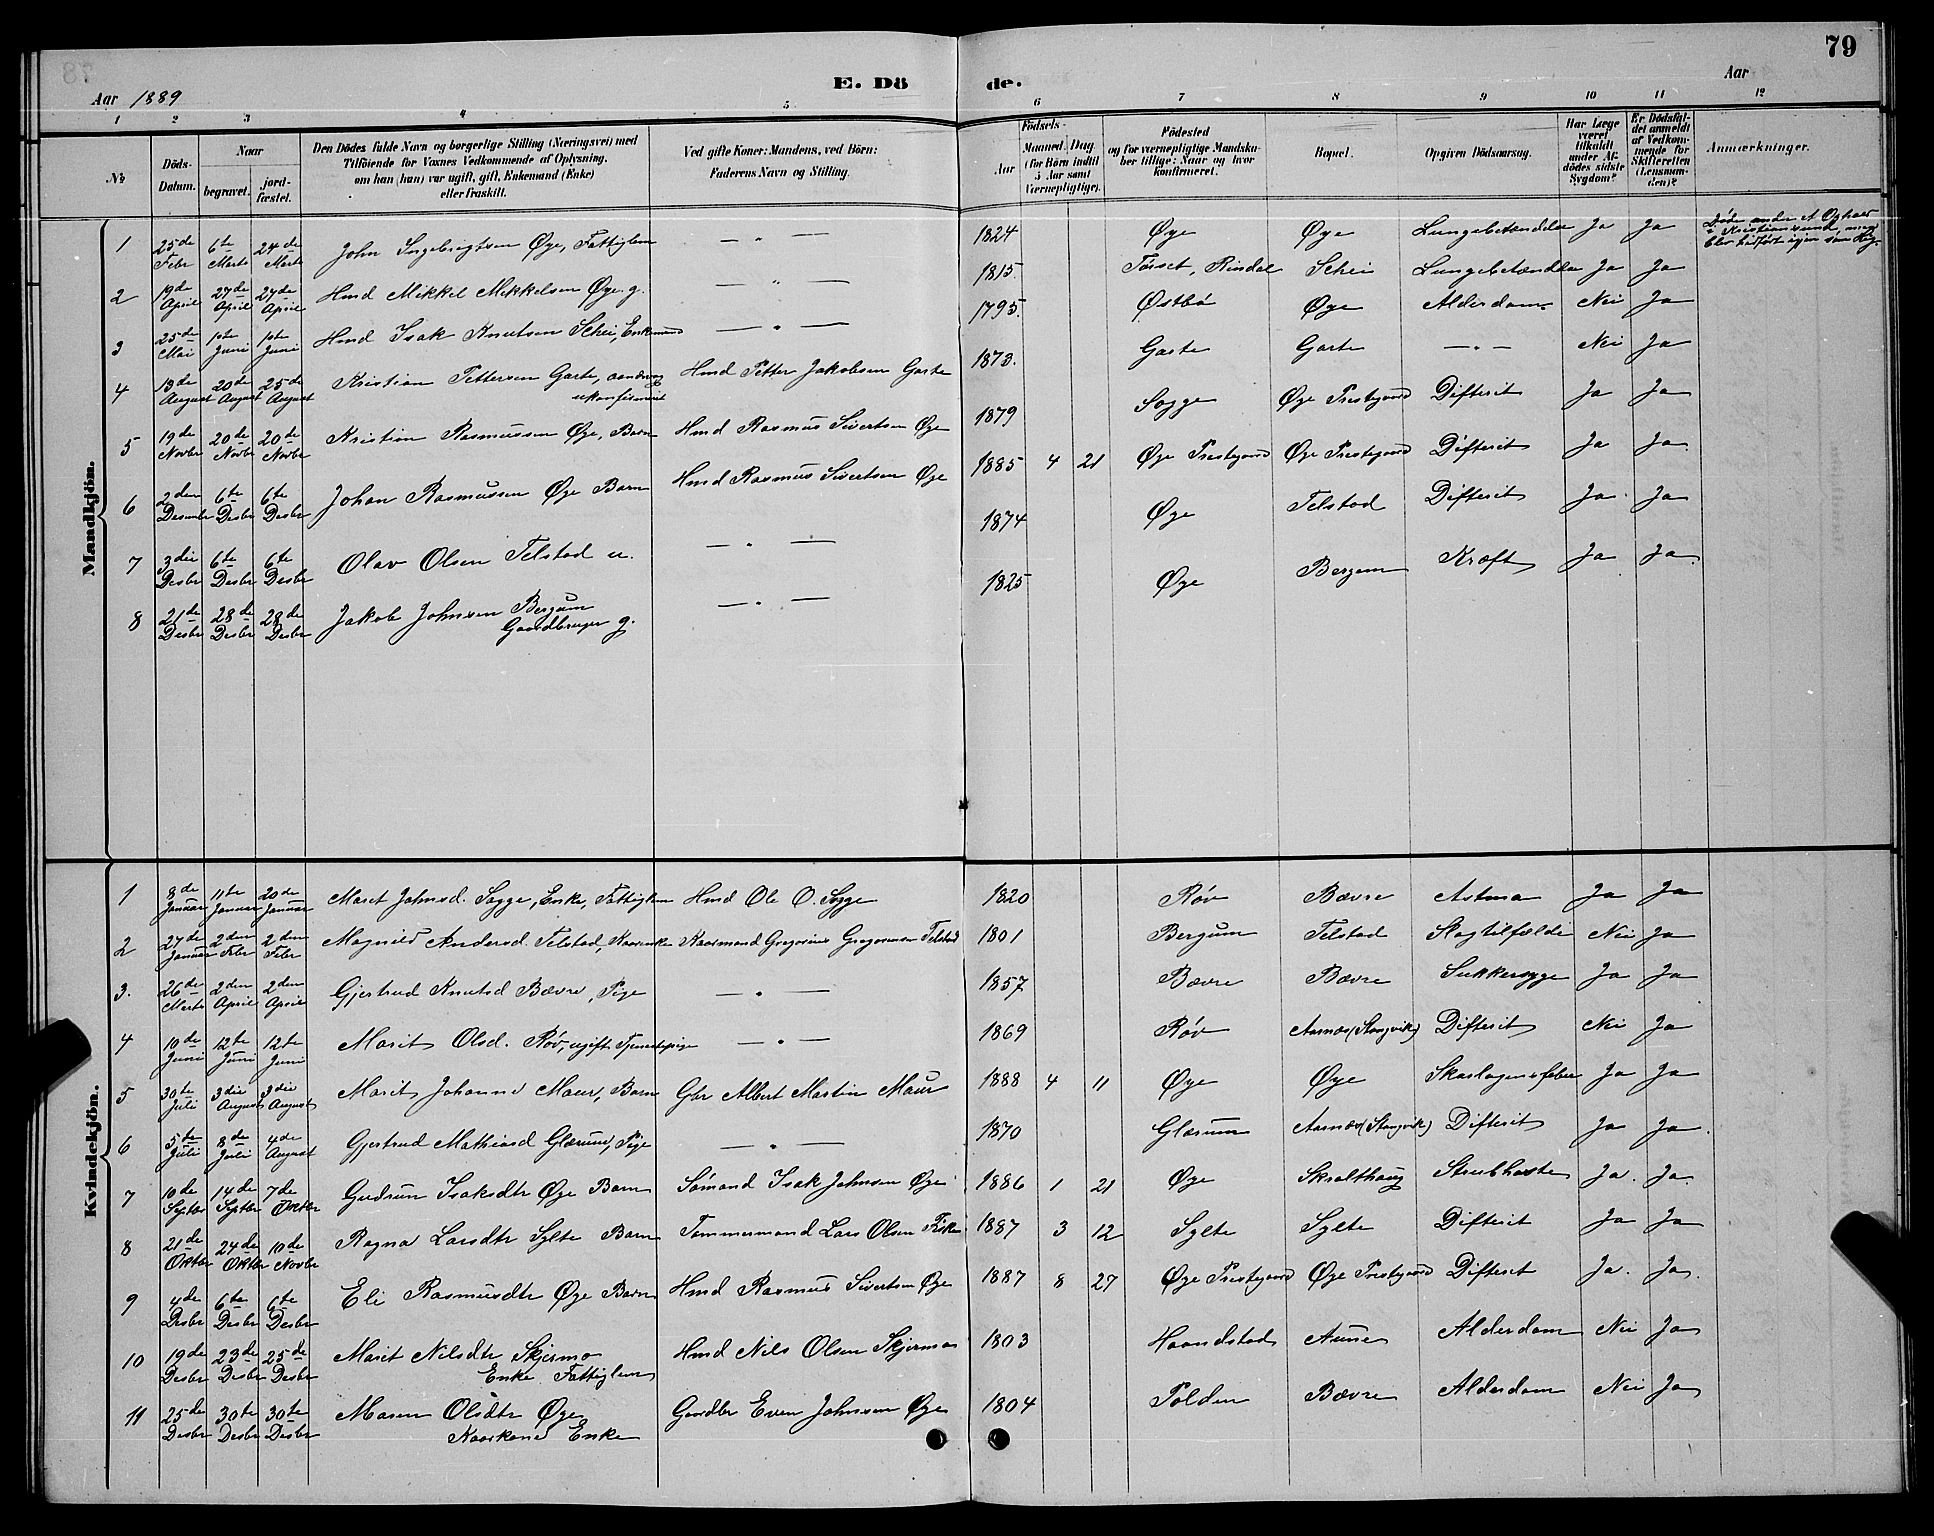 79
E. Dö de.
Aar 1889
Aar
1 2 3 4 5 6 7 8 9 10 11 12
№
Döds-Datum.
Naar
begravet.
jord-fæstet.
Den Dödes fulde Navn og borgerlige Stilling (Næringsvei) med
Tilföiende for Voxnes Vedkommende af Oplysning,
om han (hun) var ugift, gift, Enkemand (Enke)
eller fraskilt.
Ved gifte Koner: Mandens, ved Börn:
Faderens Navn og Stilling.
Födsels-
Aar
Maaned. Dag
(for Börn indtil
5 Aar samt
Værnepligtige).
Födested
og for værnepligtige Mandskaber tillige: Naar og hvor
konfirmeret.
Bopæl.
Opgiven Dödsaarsag.
Har Læge
været
tilkaldt
under Afdödes sidste
Sygdom?
Er Dödsfaldet anmeldt
af Vedkommende for
Skifteretten
(Lensmanden)?
Anmærkninger.
Mandkjön.
1 25de Febr 6te Marts 24de Marts John Ingebrigtsen Øye, Fattiglem — " — 1824 Øye Øye Lungebetændelse Ja Ja Døde under et Ophold i Kristianssund, men blev hidført igjen som Lig.
2 19de April 27de April 27de April Hmd Mikkel Mikkelsen Øye g. — " — 1815 Tørset, Rindal Schei Lungebetændelse Ja Ja
3 25de Mai 1ste Juni 1ste Juni Hmd Isak Knutsen Schei, Enkemand — " — 1795 Østbø Øye Alderdom Nei Ja
4 13de August 20de August 25de August Kristian Pettersen Garte, aandsvag ukonfirmeret Hmd Petter Jakobsen Garte 1873 Garte Garte — " — Nei Ja
5 19de Novbr 20de Novbr 20de Novbr Kristian Rasmussen Øye, Barn Hmd Rasmus Sivertsen Øye 1879 Sogge Øye Prestegaard Difterit Ja Ja
6 2den Desember 6te Desbr 6te Desbr Johan Rasmussen Øye Barn Hmd Rasmus Sivertsen Øye 1885 4 21 Øye Prestegaard Øye Prestegaard Difterit Ja Ja
7 3die Desbr 6te Desbr 6te Desbr Olav Olsen Telstad u. — " — 1874 Øye Telstad Difterit Ja Ja
8 21de Desbr 28de Desbr 28de Desbr Jakob Johnsen Bergum Gaardbruger g. — " — 1825 Øye Bergem Kræft Ja Ja
Kvindekjön.
1 8de Januar 11te Januar 20de Januar Marit Johnsd. Sogge, Enke, Fattiglem Hmd Ole O. Sogge 1820 Røv Bævre Astma Ja Ja
2 27de Januar 2den Febr 2den Febr Magnild Andersd Telstad, Kaarenke Kaarmand Gregorius Gregoriussen Telstad 1801 Bergum Telstad Slagtilfælde Nei Ja
3. 26de Marts 2den April 2den April Gjertrud Knutsd Bævre, Pige — " — 1857 Bævre Bævre Sukkersyge Ja Ja
4 10de Juni 12te Juni 12te Juni Marit Olsd. Røv, ugift Tjenestepige — " — 1869 Røv Aarnæs (Stangvik) Difterit Nei Ja
5 30te Juli 3die August 3die August Marit Johanne Maur, Barn Gbr Albert Martin Maur 1888 4 11 Øye Øye Skarlagensfeber Ja Ja
6 5te Juli 8de Juli 4de August Gjertrud Mathiasd Glærum, Pige — " — 1870 Glærum Aarnæs (Stangvik) Difterit Ja Ja
7 10de Septbr 14de Septbr 7de Oktbr Gudrun Isaksdtr Øye Barn Sømand Isak Johnsen Øye 1886 1 21 Øye Skralthaug Strubhoste Ja. Ja
8 21de Oktbr 24de Oktbr 10de Novbr Ragna Larsdtr Sylte Barn Tømmermand Lars Olsen Fiske 1887 3 12 Sylte Sylte Difterit Ja Ja
9 4de Desbr 6te Desbr 6te Desbr Eli Rasmusdtr Øye Barn Hmd Rasmus Sivertsen Øye 1887 8 27 Øye Prestegaard Øye Prestegaard Difterit Ja. Ja.
10 19de Desbr 23de Desbr 25de Desbr Marit Nilsdtr Skjermo Enke Fattiglem Hmd Nils Olsen Skjermo 1803 Haandstad Aune Alderdom Nei Ja
11 25de Desbr 30te Desbr 30te Desbr Maren Olsdtr Øye Kaarkone Enke Gaardbr Even Johnsen Øye 1804 Polden Bævre Alderdom Nei Ja